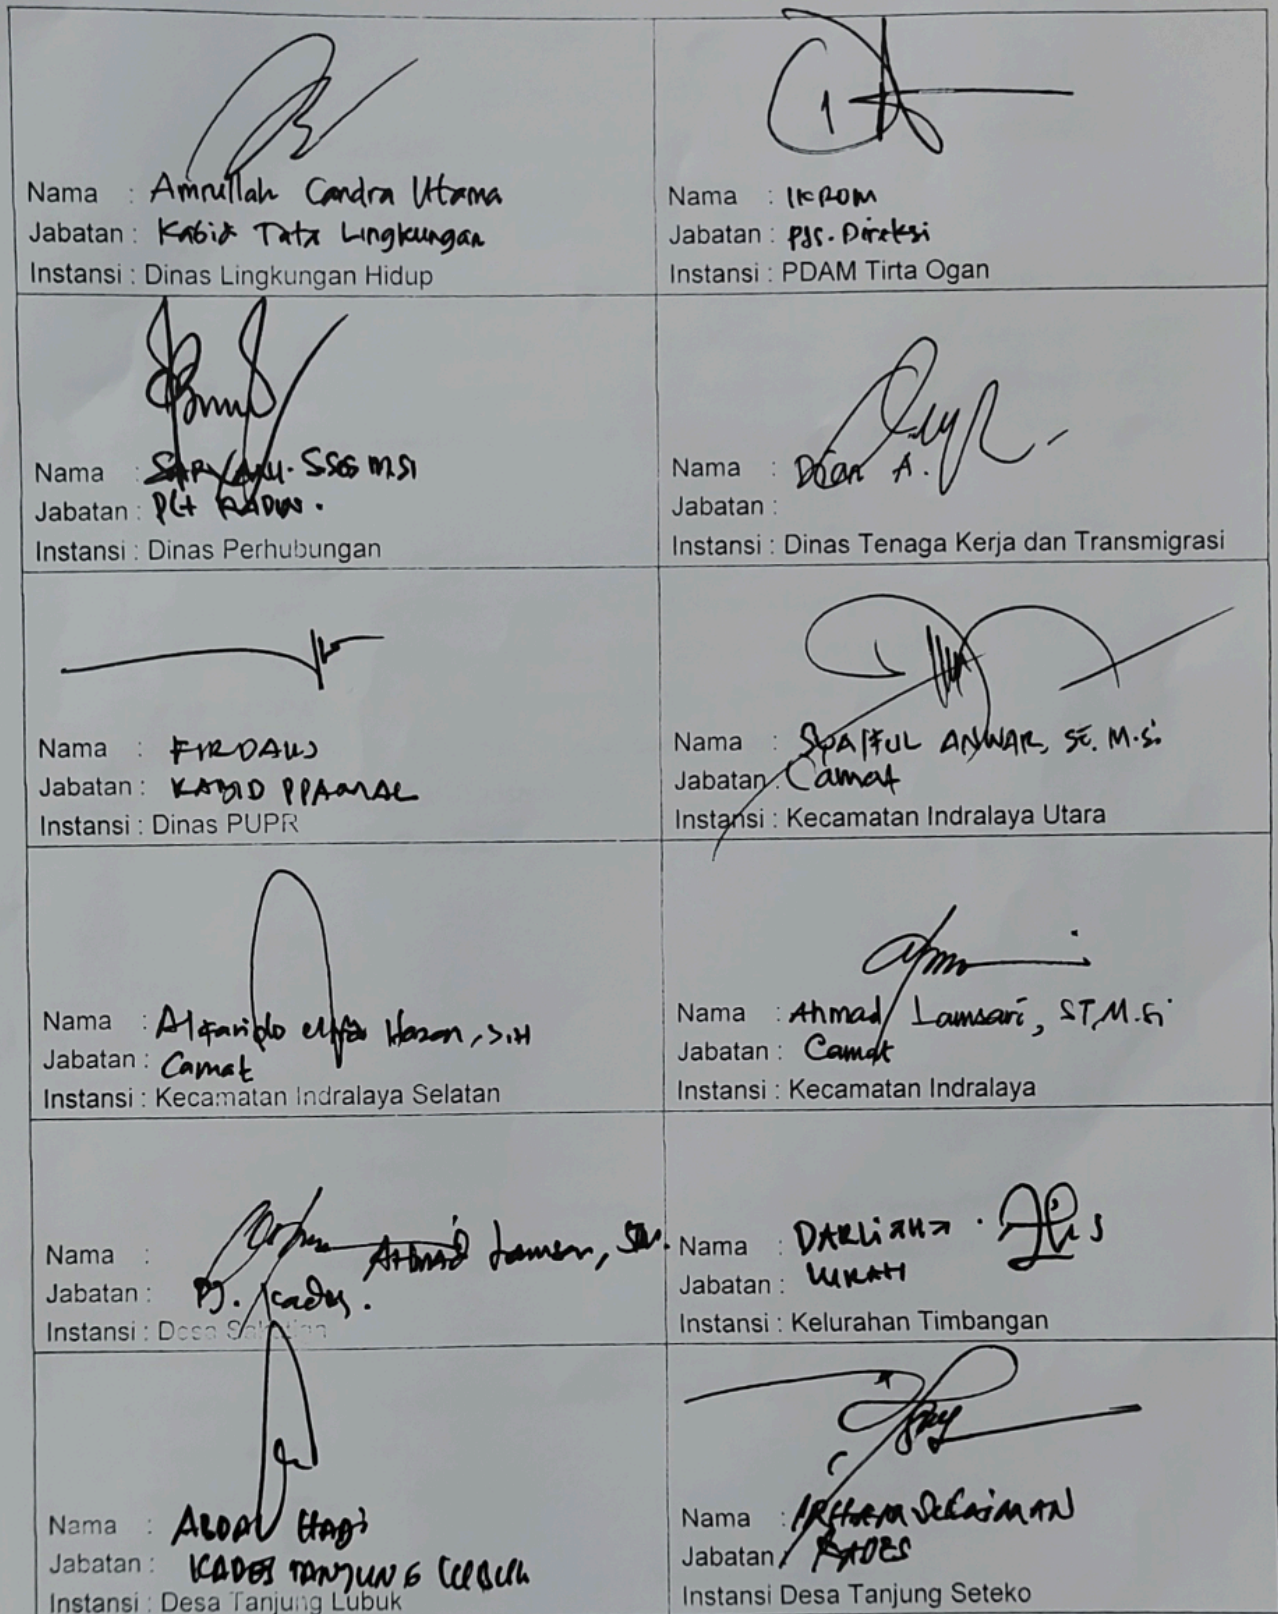 Nama : Amrullah Candra Utama
Jabatan : Kabid Tata Lingkungan
Instansi : Dinas Lingkungan Hidup
Nama : IKROM
Jabatan : Pjs. Direksi
Instansi : PDAM Tirta Ogan
Nama : SSos MSi
Jabatan : Plt KADIS.
Instansi : Dinas Perhubungan
Nama : Dian A.
Jabatan :
Instansi : Dinas Tenaga Kerja dan Transmigrasi
Nama : FIRDAUS
Jabatan : KABID
Instansi : Dinas PUPR
Nama : SYAIFUL ANWAR, SE. M.Si
Jabatan : Camat
Instansi : Kecamatan Indralaya Utara
Nama : Alfarido Hasan, S.H
Jabatan : Camat
Instansi : Kecamatan Indralaya Selatan
Nama : Ahmad Lamsari, ST, M.Si
Jabatan : Camat
Instansi : Kecamatan Indralaya
Nama : Ahmad Lamsari,
Jabatan : Pj. Kades.
Instansi : Desa
Nama : DARLiAHA
Jabatan : LURAH
Instansi : Kelurahan Timbangan
Nama : ABDAL
Jabatan : KADES TANJUNG LUBUK
Instansi : Desa Tanjung Lubuk
Nama : SULAIMAN
Jabatan KADES
Instansi Desa Tanjung Seteko